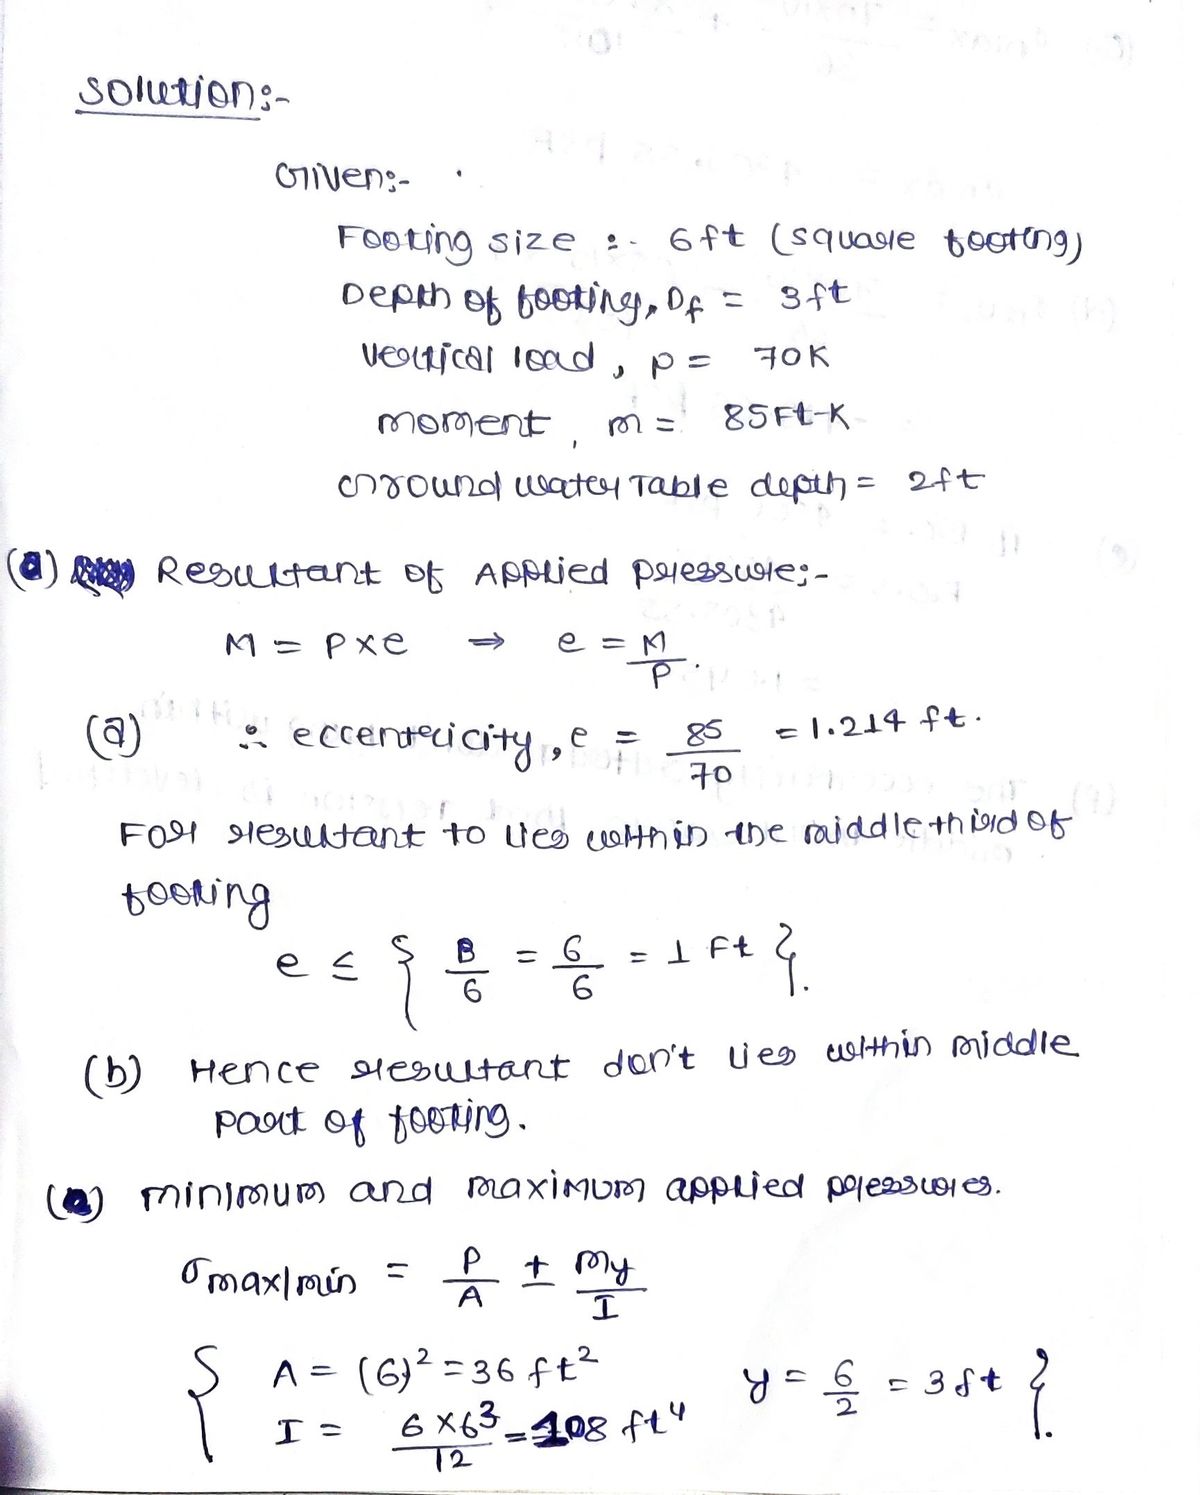 Solution:-
Given:-
Footing size :- 6ft (square footing)
Depth of footing, Df = 3ft
Vertical load, P = 70K
Moment, m = 85Ft-K
Ground water Table depth = 2ft
(a) Resultant of Applied pressure:-
M = P×e ⇒ e = M/P.
(a) ∴ eccentricity, e = 85/70 = 1.214 ft.
For resultant to lies within the middle third of
footing
e ≤ { B/6 = 6/6 = 1 Ft }.
(b) Hence resultant don't lies within middle
part of footing.
(c) minimum and maximum applied pressures.
σmax/min = P/A ± my/I
{ A = (6)² = 36 ft² y = 6/2 = 3ft }.
I = 6×6³/12 = 108 ft⁴